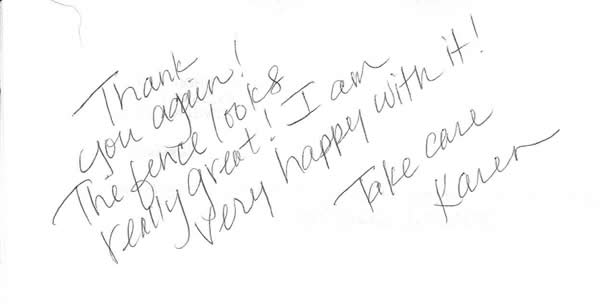 Thank
you again!
The fence looks
really great! I am
very happy with it!
Take care
Karen